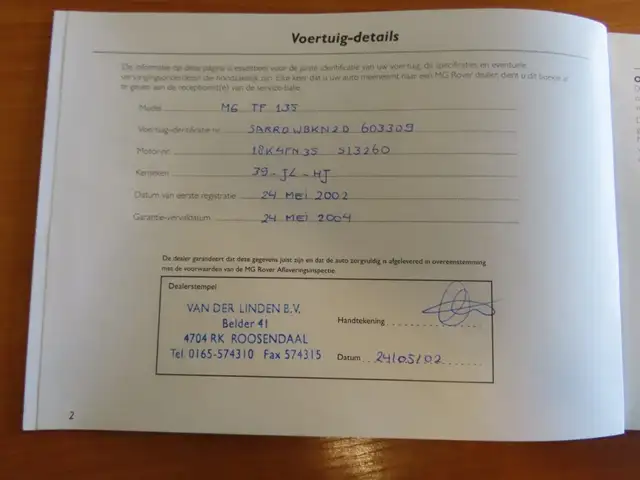 Voertuig-details
De informatie op deze pagina is essentieel voor de juiste identificatie van uw voertuig, de specificaties en eventuele
vervangingsonderdelen die noodzakelijk zijn. Elke keer dat u uw auto meeneemt naar een MG Rover dealer, dient u dit boekje af
te geven aan de receptionist(e) van de service-balie.
Model MG TF 135
Voertuig-identificatie nr. SARRDWBKN2D 603309
Motornr. 18K4FN35 513260
Kenteken 39-JL-HJ
Datum van eerste registratie 24 MEI 2002
Garantie-vervaldatum 24 MEI 2004
De dealer garandeert dat deze gegevens juist zijn en dat de auto zorgvuldig is afgeleverd in overeenstemming
met de voorwaarden van de MG Rover Afleveringsinspectie.
Dealerstempel
VAN DER LINDEN B.V.
Belder 41
4704 RK ROOSENDAAL
Tel. 0165-574310 Fax 574315
Handtekening
Datum 24/05/02
2